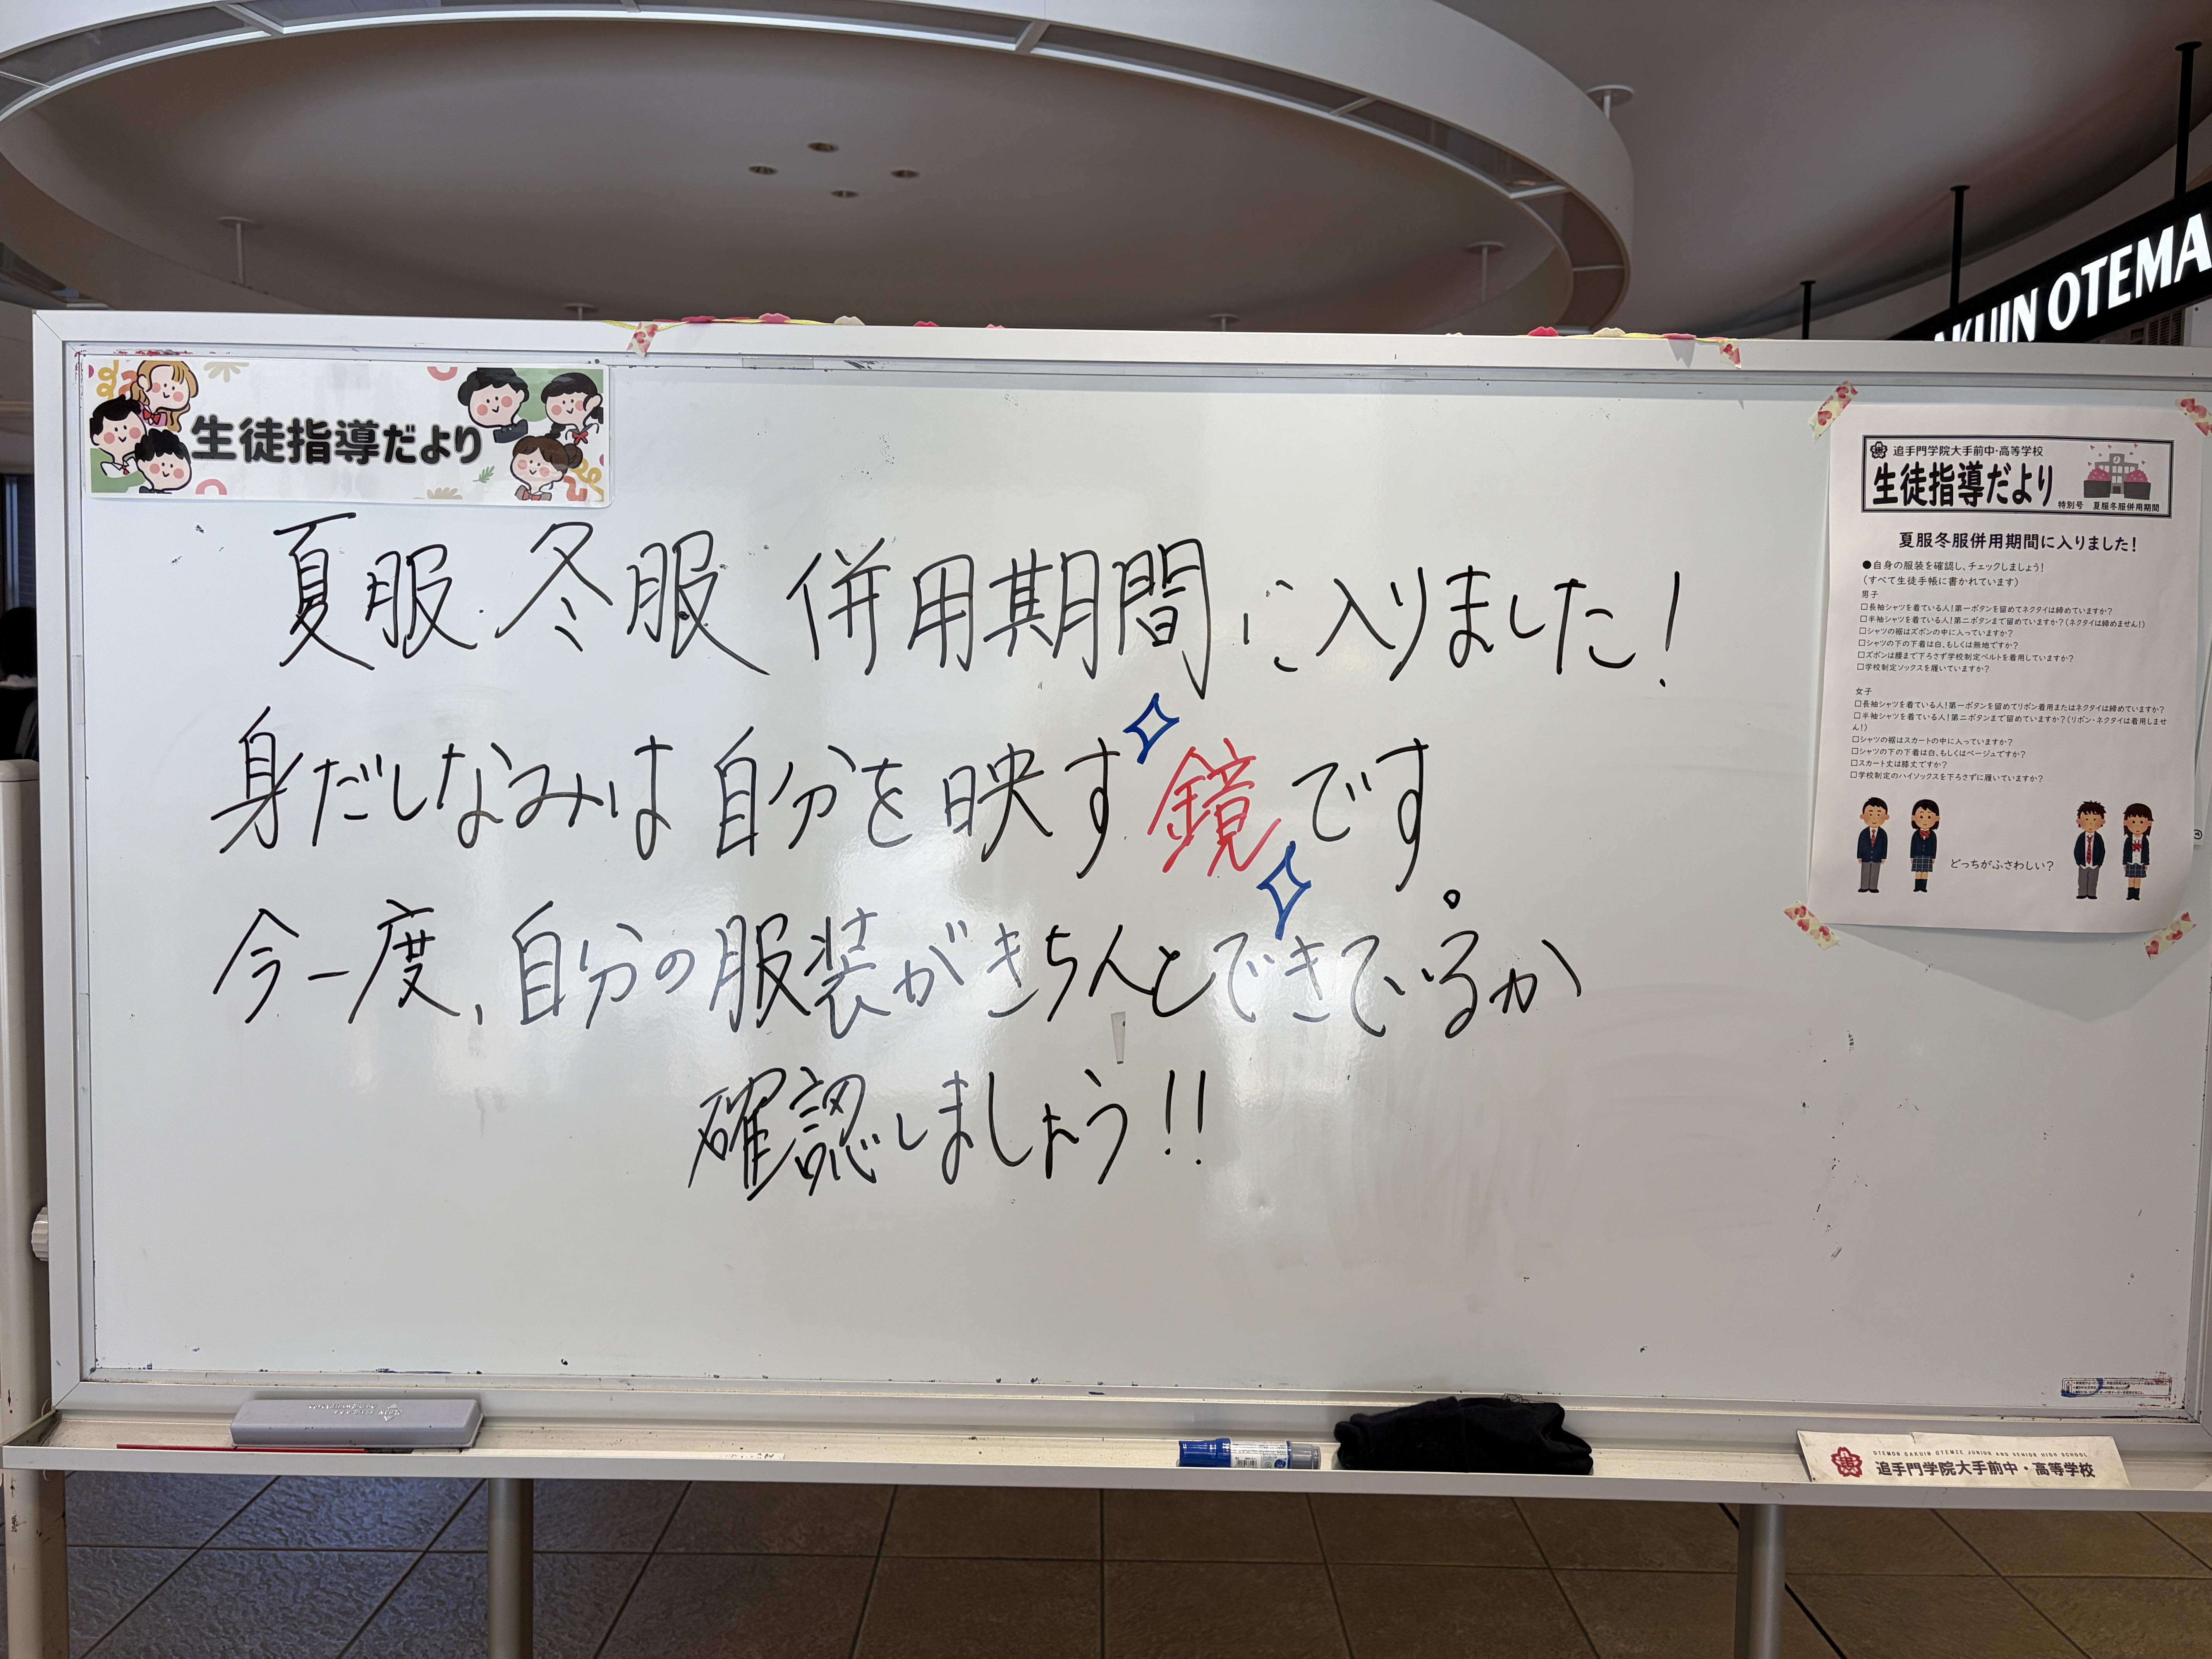 AKUIN OTEMA
生徒指導だより
夏服.冬服 併用期間に入りました!
身だしなみは自分を映す鏡です。
今一度、自分の服装がきちんとできているか
確認しましょう!!
追手門学院大手前中・高等学校
生徒指導だより
特別号 夏服冬服併用期間
夏服冬服併用期間に入りました!
●自身の服装を確認し、チェックしましょう!
(すべて生徒手帳に書かれています)
男子
□長袖シャツを着ている人!第一ボタンを留めてネクタイは締めていますか?
□半袖シャツを着ている人!第二ボタンまで留めていますか?(ネクタイは締めません!)
□シャツの裾はズボンの中に入っていますか?
□シャツの下の下着は白、もしくは無地ですか?
□ズボンは腰まで下ろさず学校制定ベルトを着用していますか?
□学校制定ソックスを履いていますか?
女子
□長袖シャツを着ている人!第一ボタンを留めてリボン着用またはネクタイは締めていますか?
□半袖シャツを着ている人!第二ボタンまで留めていますか?(リボン・ネクタイは着用しませ
ん!)
□シャツの裾はスカートの中に入っていますか?
□シャツの下の下着は白、もしくはベージュですか?
□スカート丈は膝丈ですか?
□学校制定のハイソックスを下ろさずに履いていますか?
どっちがふさわしい?
OTEMON GAKUIN OTEMAE JUNIOR AND SENIOR HIGH SCHOOL
追手門学院大手前中・高等学校